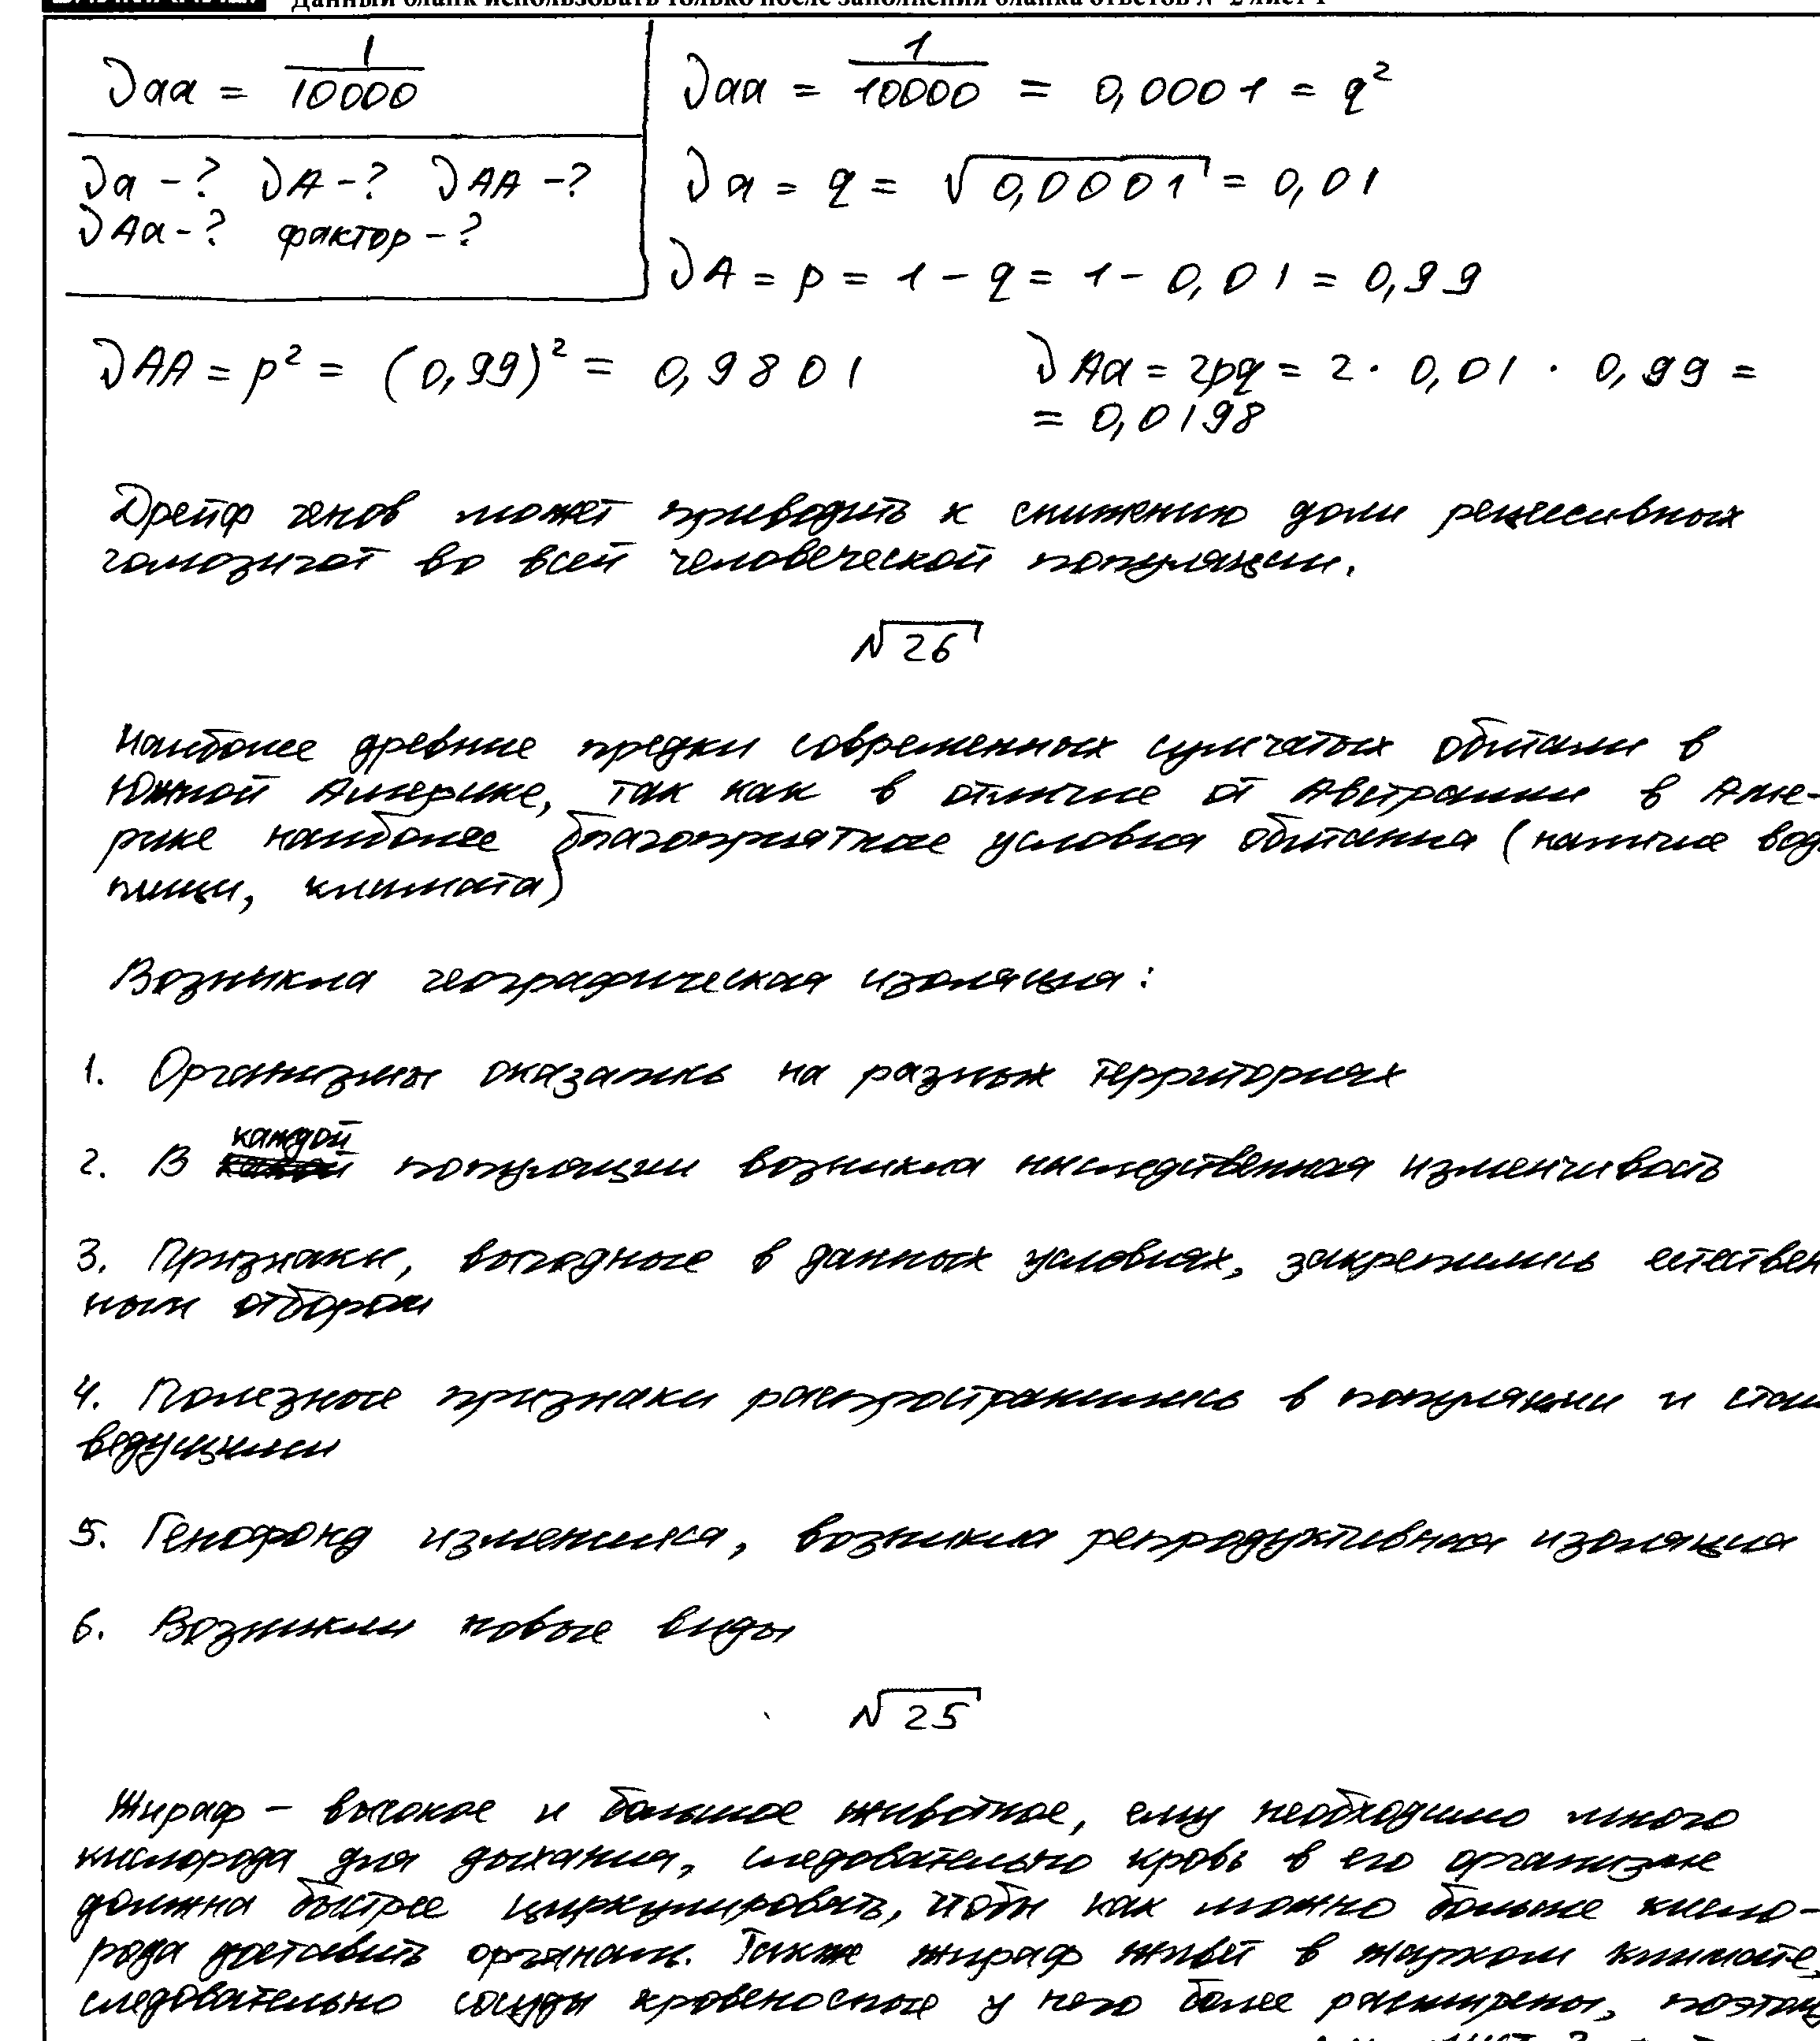 Данный бланк использовать только после заполнения бланка ответов № 2 лист 1
∂aa = 1/10000
∂a - ? ∂A - ? ∂AA - ?
∂Aa - ? фактор - ?
∂aa = 1/10000 = 0,0001 = q²
∂a = q = √0,0001 = 0,01
∂A = p = 1 - q = 1 - 0,01 = 0,99
∂AA = p² = (0,99)² = 0,9801
∂Aa = 2pq = 2 · 0,01 · 0,99 =
= 0,0198
Дрейф генов может приводить к снижению доли рецессивных
гомозигот во всей человеческой популяции.
№26
Наиболее древние предки современных сумчатых обитали в
Южной Америке, так как в отличие от Австралии в Аме-
рике наиболее благоприятные условия обитания (наличие воды
пищи, климата)
Возникла географическая изоляция:
1. Организмы оказались на разных территориях
2. В каждой популяции возникла наследственная изменчивость
3. Признаки, выгодные в данных условиях, закрепились естествен
ным отбором
4. Полезные признаки распространились в популяции и стали
ведущими
5. Генофонд изменился, возникла репродуктивная изоляция
6. Возникли новые виды
№25
Жираф - высокое и большое животное, ему необходимо много
кислорода для дыхания, следовательно кровь в его организме
должна быстрее циркулировать, чтобы как можно больше кисло-
рода доставить органам. Также жираф живёт в жарком климате,
следовательно сосуды кровеносные у него более расширены, поэтому